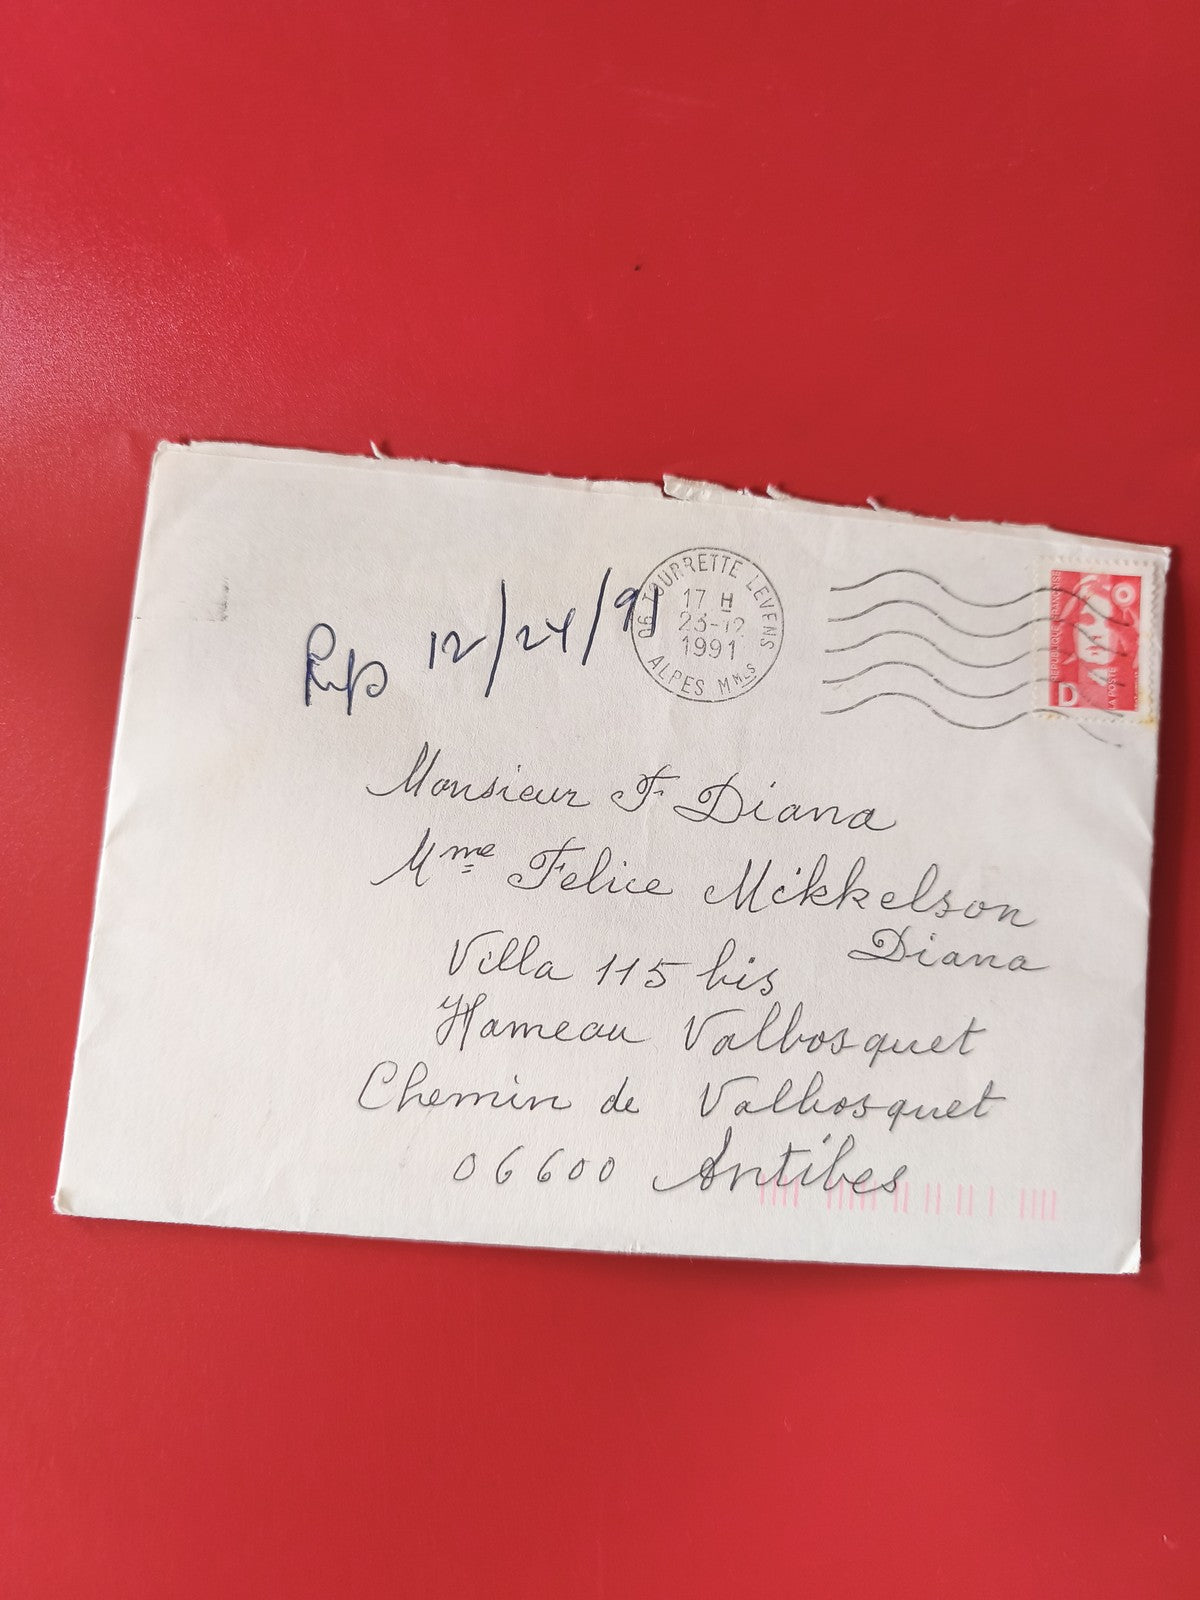 06 TOURRETTE LEVENS
17 H
23-12
1991
ALPES MMES
RÉPUBLIQUE FRANÇAISE
D
LA POSTE
12/24/91
Monsieur F Diana
Mme Felice Mikkelson
Diana
Villa 115 bis
Hameau Valbosquet
Chemin de Valbosquet
06600 Antibes